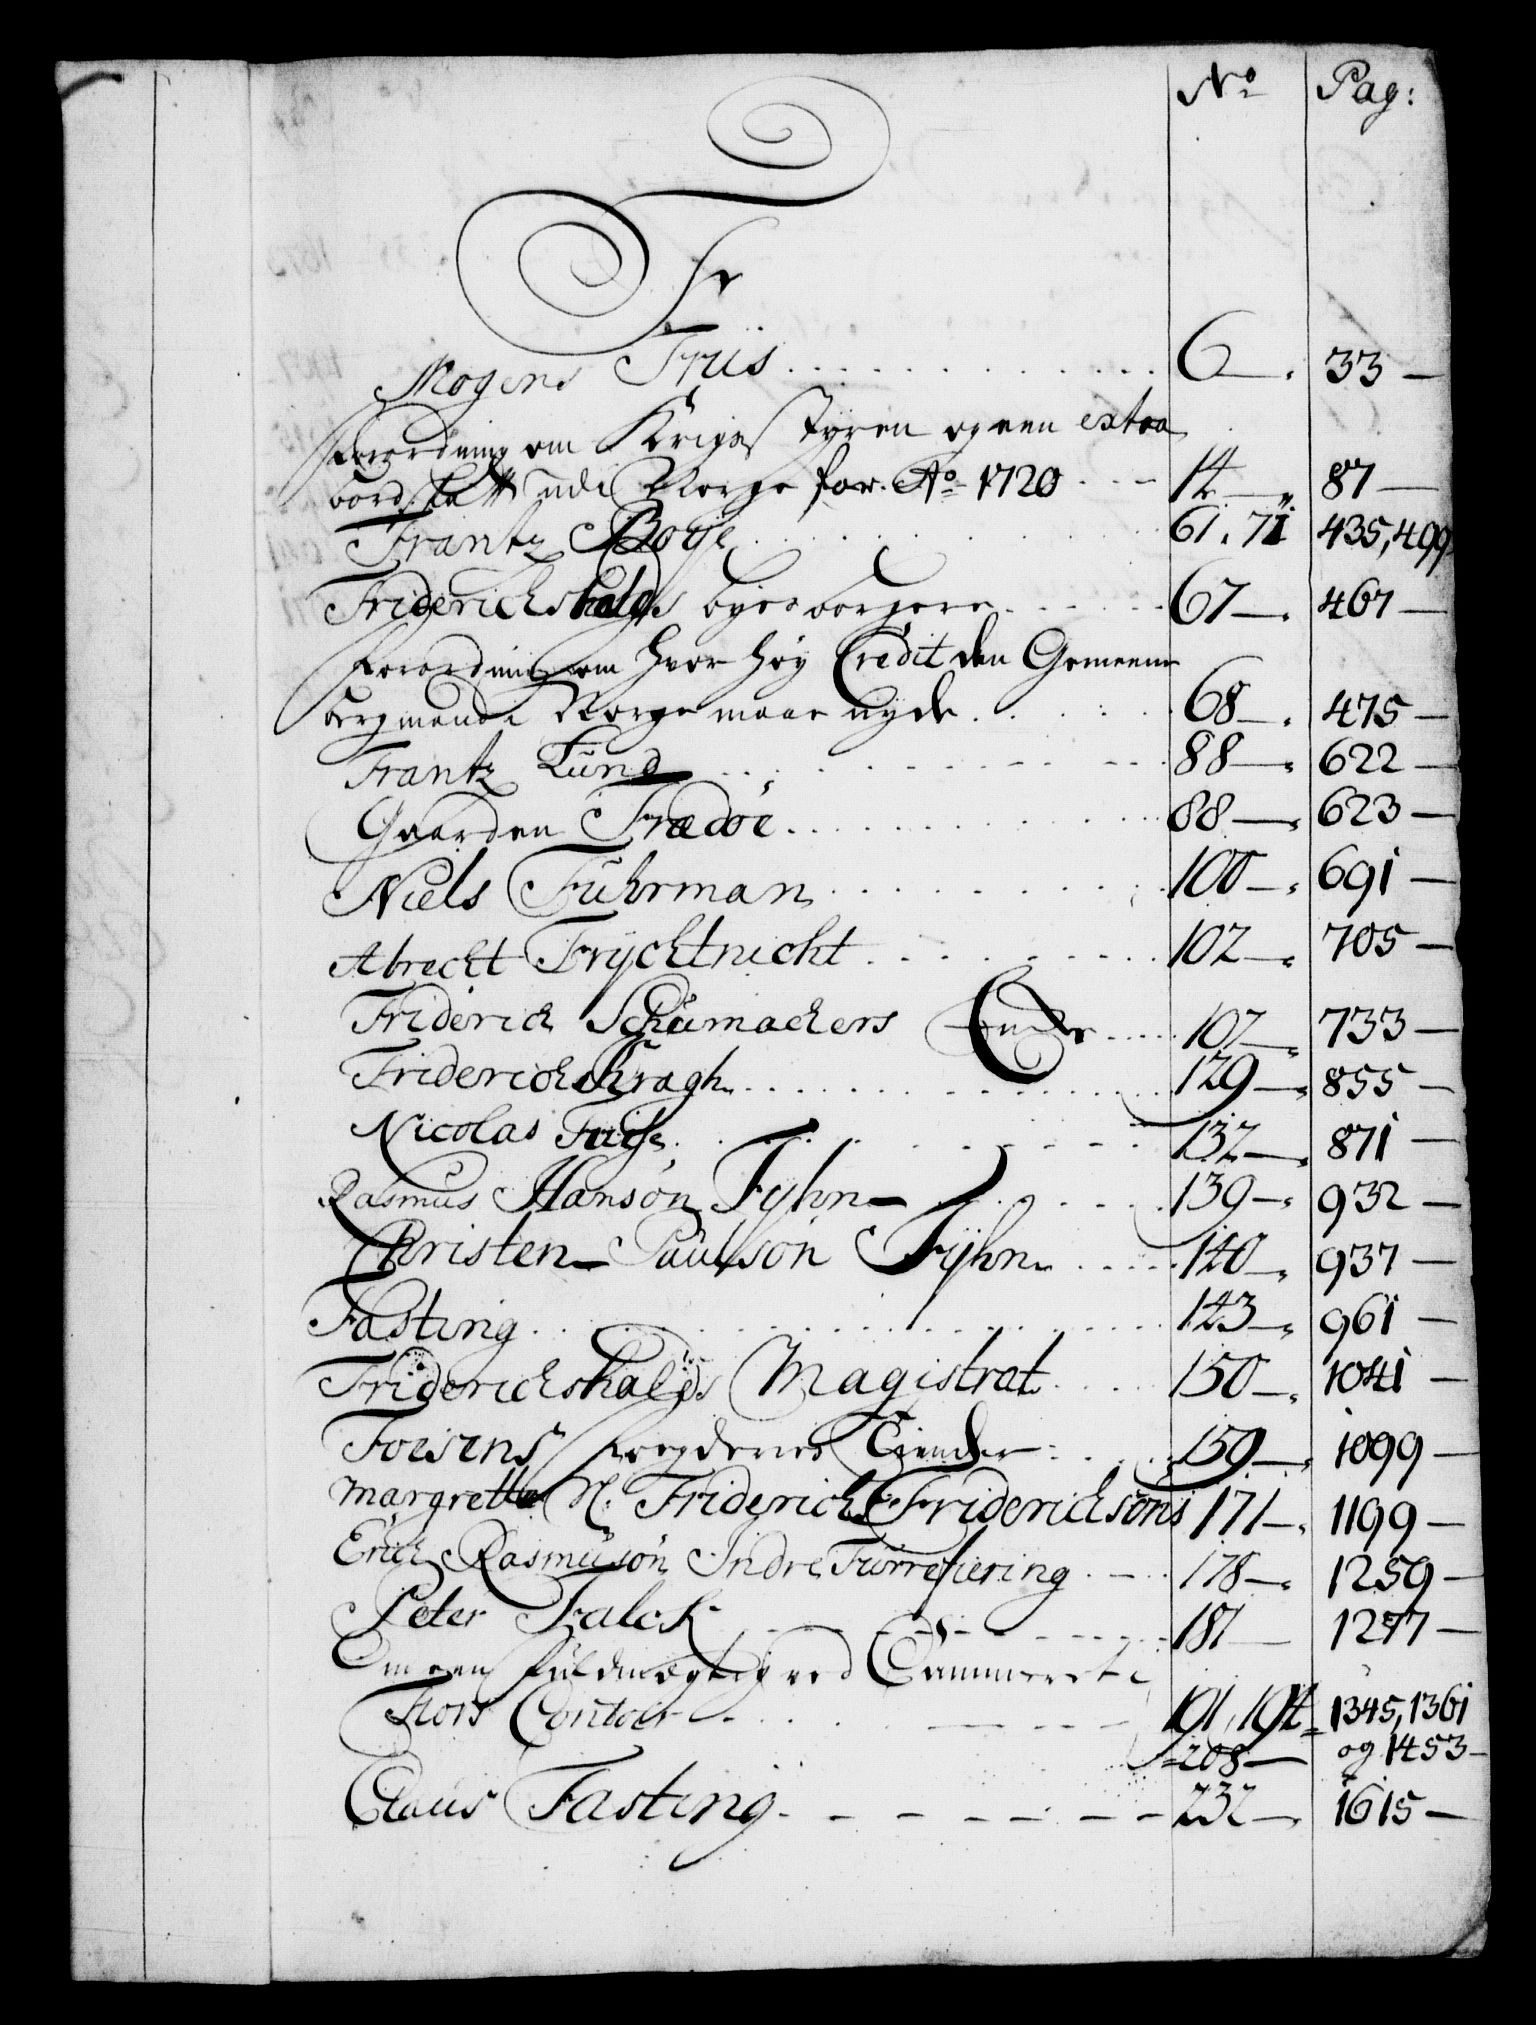 No Pag:
F
Mogens Friis 6 33
Forordning om Krigs Styren og een extra
udi Norge for Ao 1720 14 87
Frantz Borse 61, 71 435, 499
Friderichshalds byes borgere 67 467
Forordning om hvor høy Credit den Gemeene
bergmand i Norge maae nyde 68 475
Frantz Lund 88 622
Gaarden Frædöe 88 623
Niels Fuhrman 100 691
Abrecht Frychtnicht 102 705
Friderich Schumachers Encke 107 733
Friderich Kragh 129 855
Nicolas 132 871
Rasmus Hansøn Fyhn 139 932
Christen Paulsøn Fyhn 140 937
Fasting 143 961
Friderichshalds Magistrat 150 1041
Fosens fogderies Tiender 159 1099
Margrette Friderich Friderichsøns 171 1199
Erich Rasmusøn Indre Furrefiering 178 1259
Peter Falck 181 1277
Om een fuldmægtig ved Cammer
Contoir 191, 194 1345, 1361
208 og 1453
Claus Fasting 232 1615